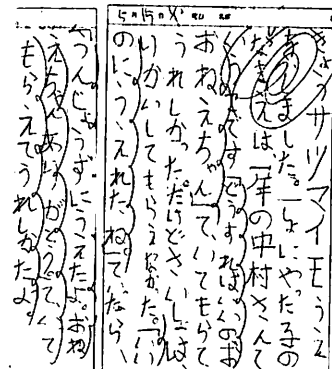 きょうサツマイモうえ
をしました。一しょにやった子の
なまえは、一年の中村さんて
くんです。どうすればいいのお
おねえちゃんて、いてもらって
うれしかっただけどさいしょは、
りかいしてもらえなかった。一かい
のに、うえれたね。て、いたら、
かんじょうずにうえたよ。おね
えちゃんありがとうて、いて
もらえてうれしかたよ。